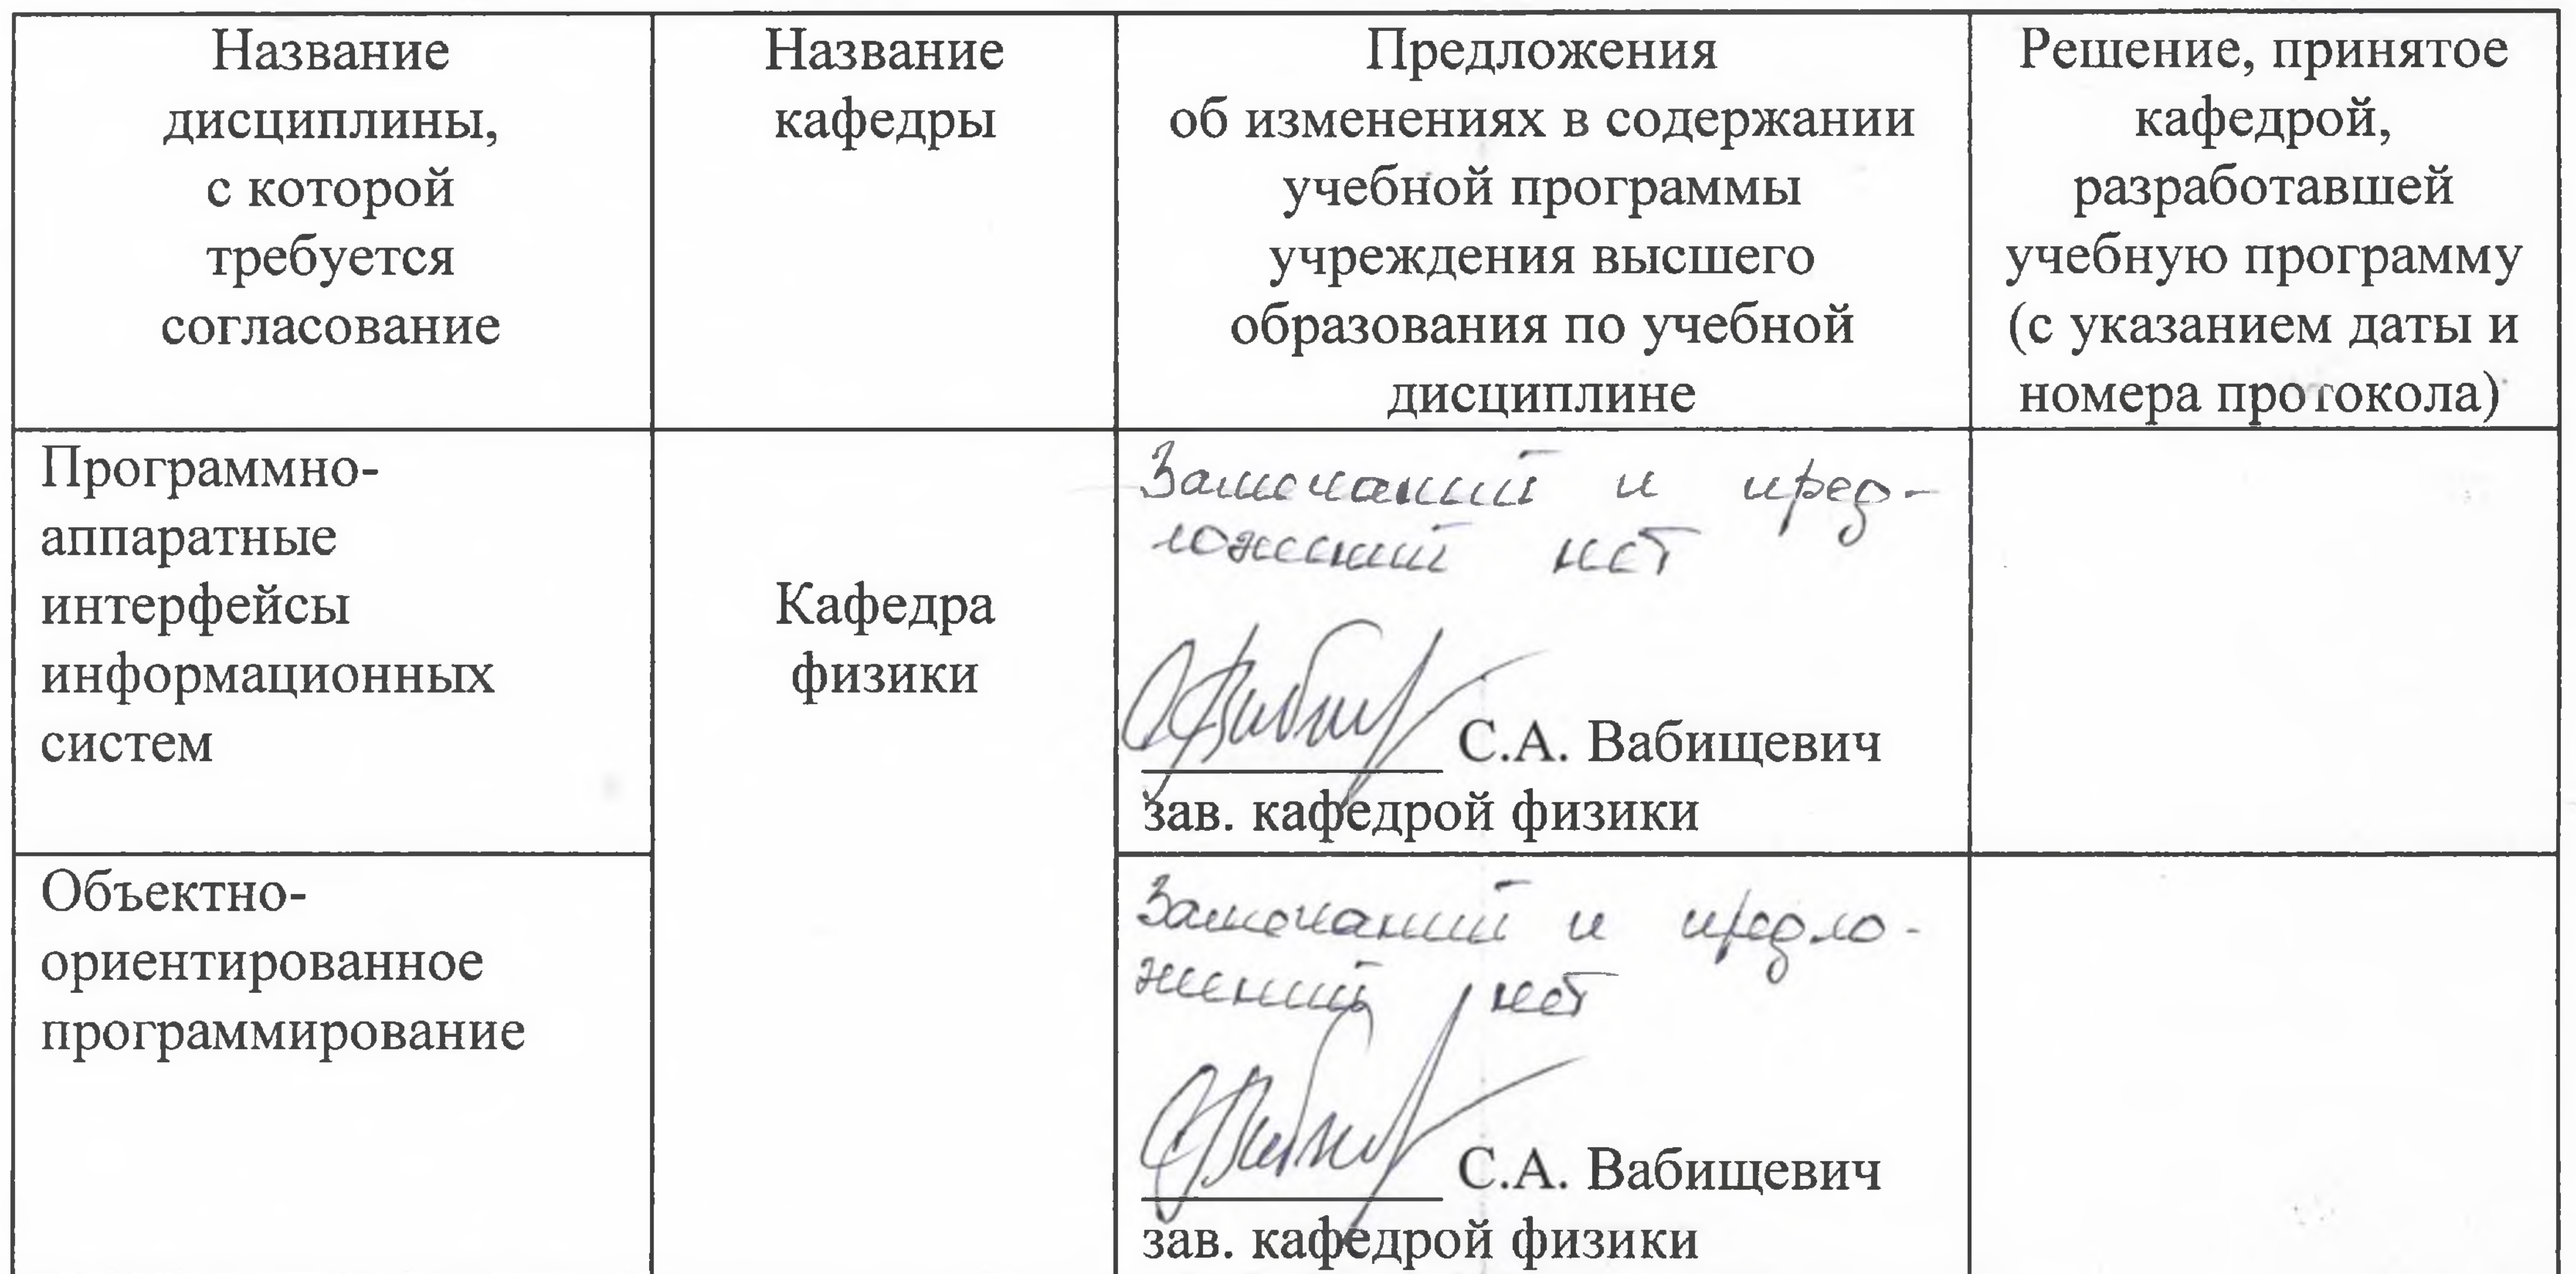 Название
дисциплины,
с которой
требуется
согласование
Название
кафедры
Предложения
об изменениях в содержании
учебной программы
учреждения высшего
образования по учебной
дисциплине
Решение, принятое
кафедрой,
разработавшей
учебную программу
(с указанием даты и
номера протокола)
Программно-
аппаратные
интерфейсы
информационных
систем
Кафедра
физики
Замечаний и пред-
ложений нет
С.А. Вабищевич
зав. кафедрой физики
Объектно-
ориентированное
программирование
Замечаний и предло-
жений нет
С.А. Вабищевич
зав. кафедрой физики